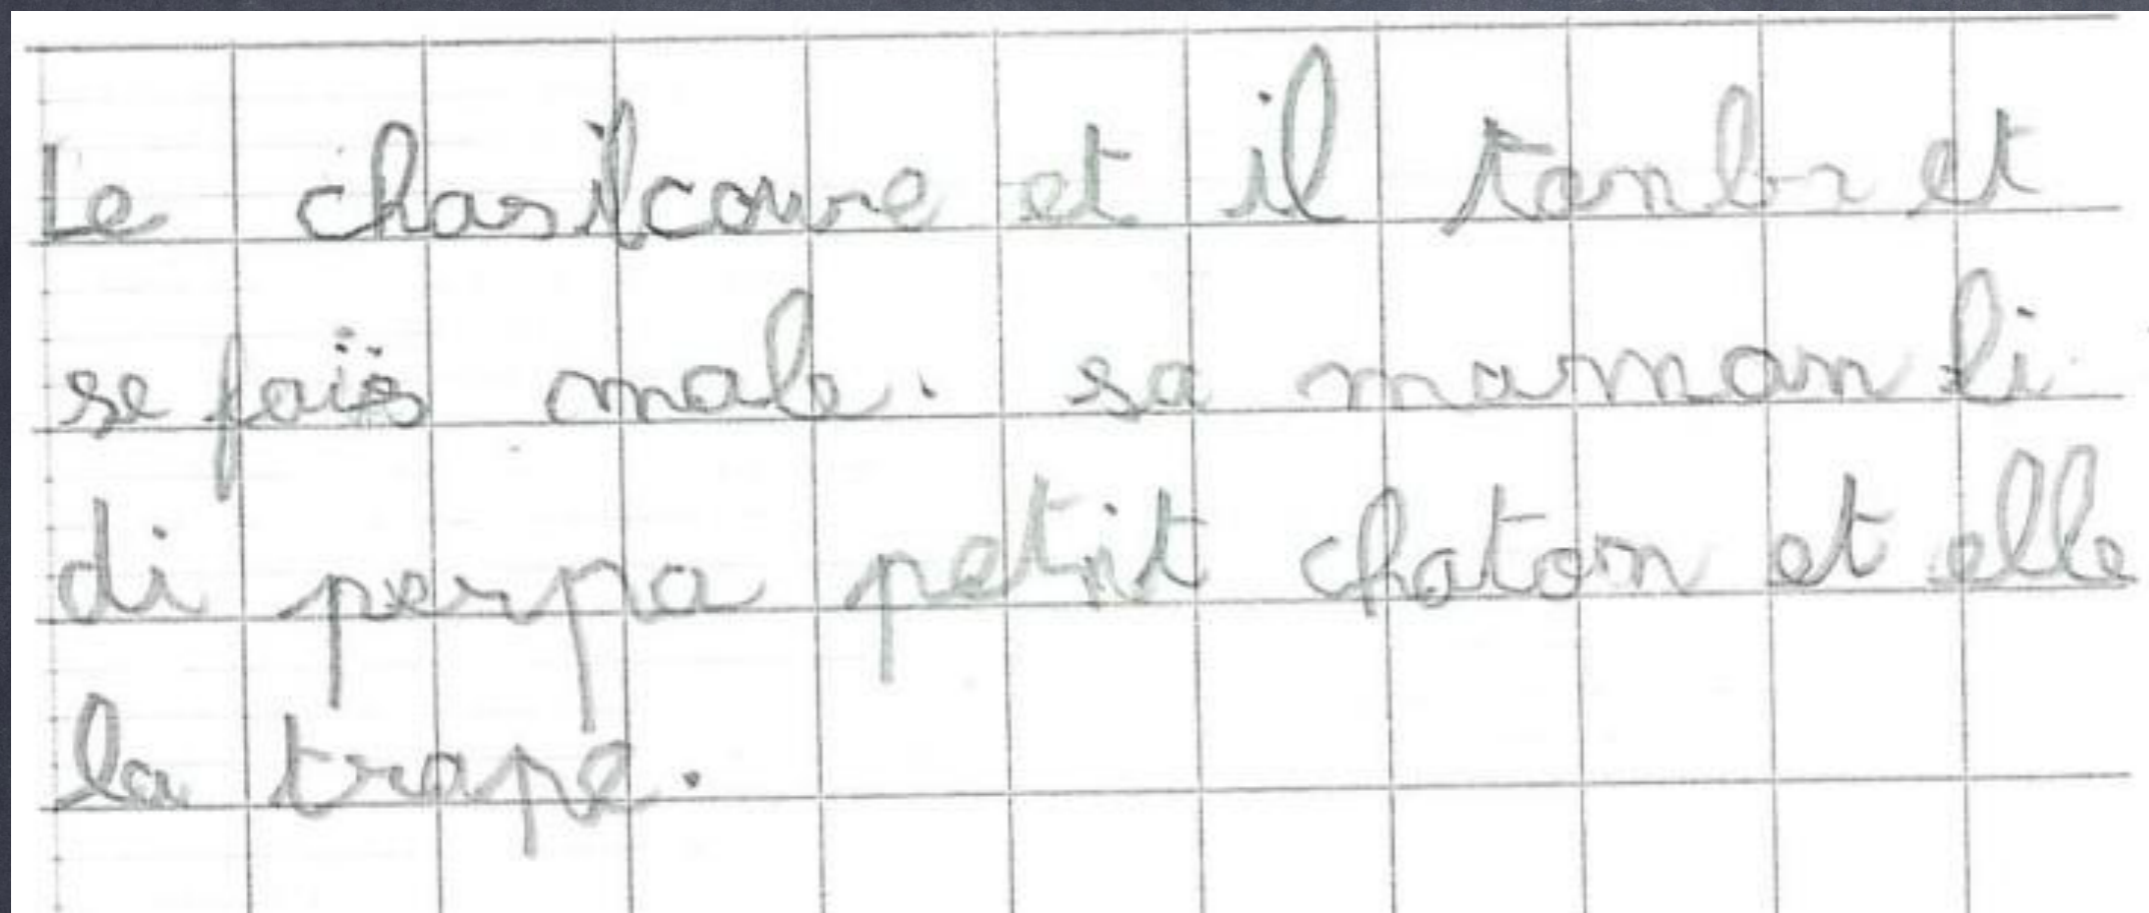 Le chasilcoure et il tonbe et
se fais male. sa maman li
di perpa petit chaton et elle
la trape.